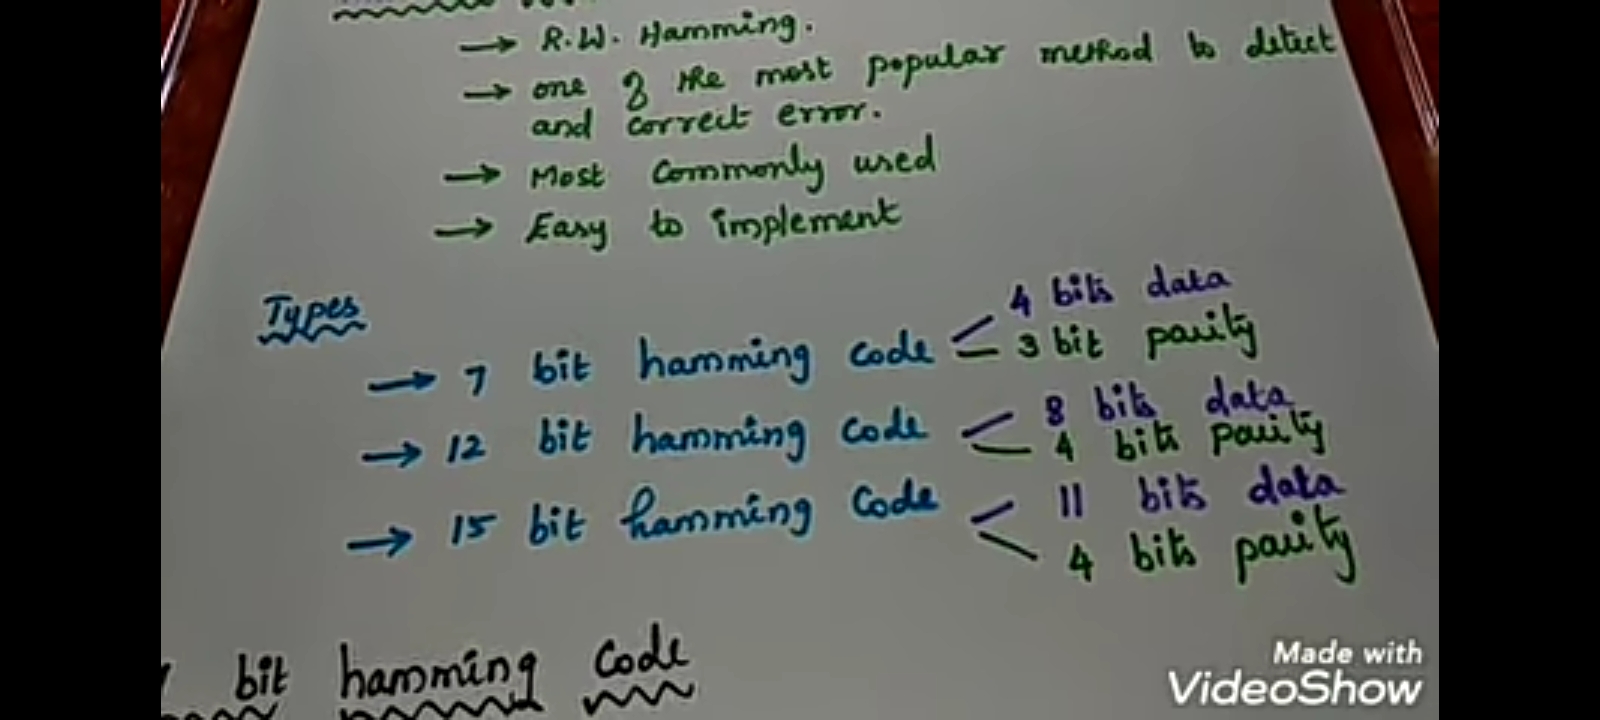 → R.W. Hamming.
→ one of the most popular method to detect
and correct error.
→ Most commonly used
→ Easy to implement
Types
→ 7 bit hamming code
4 bits data
3 bit parity
→ 12 bit hamming code
8 bits data
4 bits parity
→ 15 bit hamming code
11 bits data
4 bits parity
bit hamming code
Made with
VideoShow